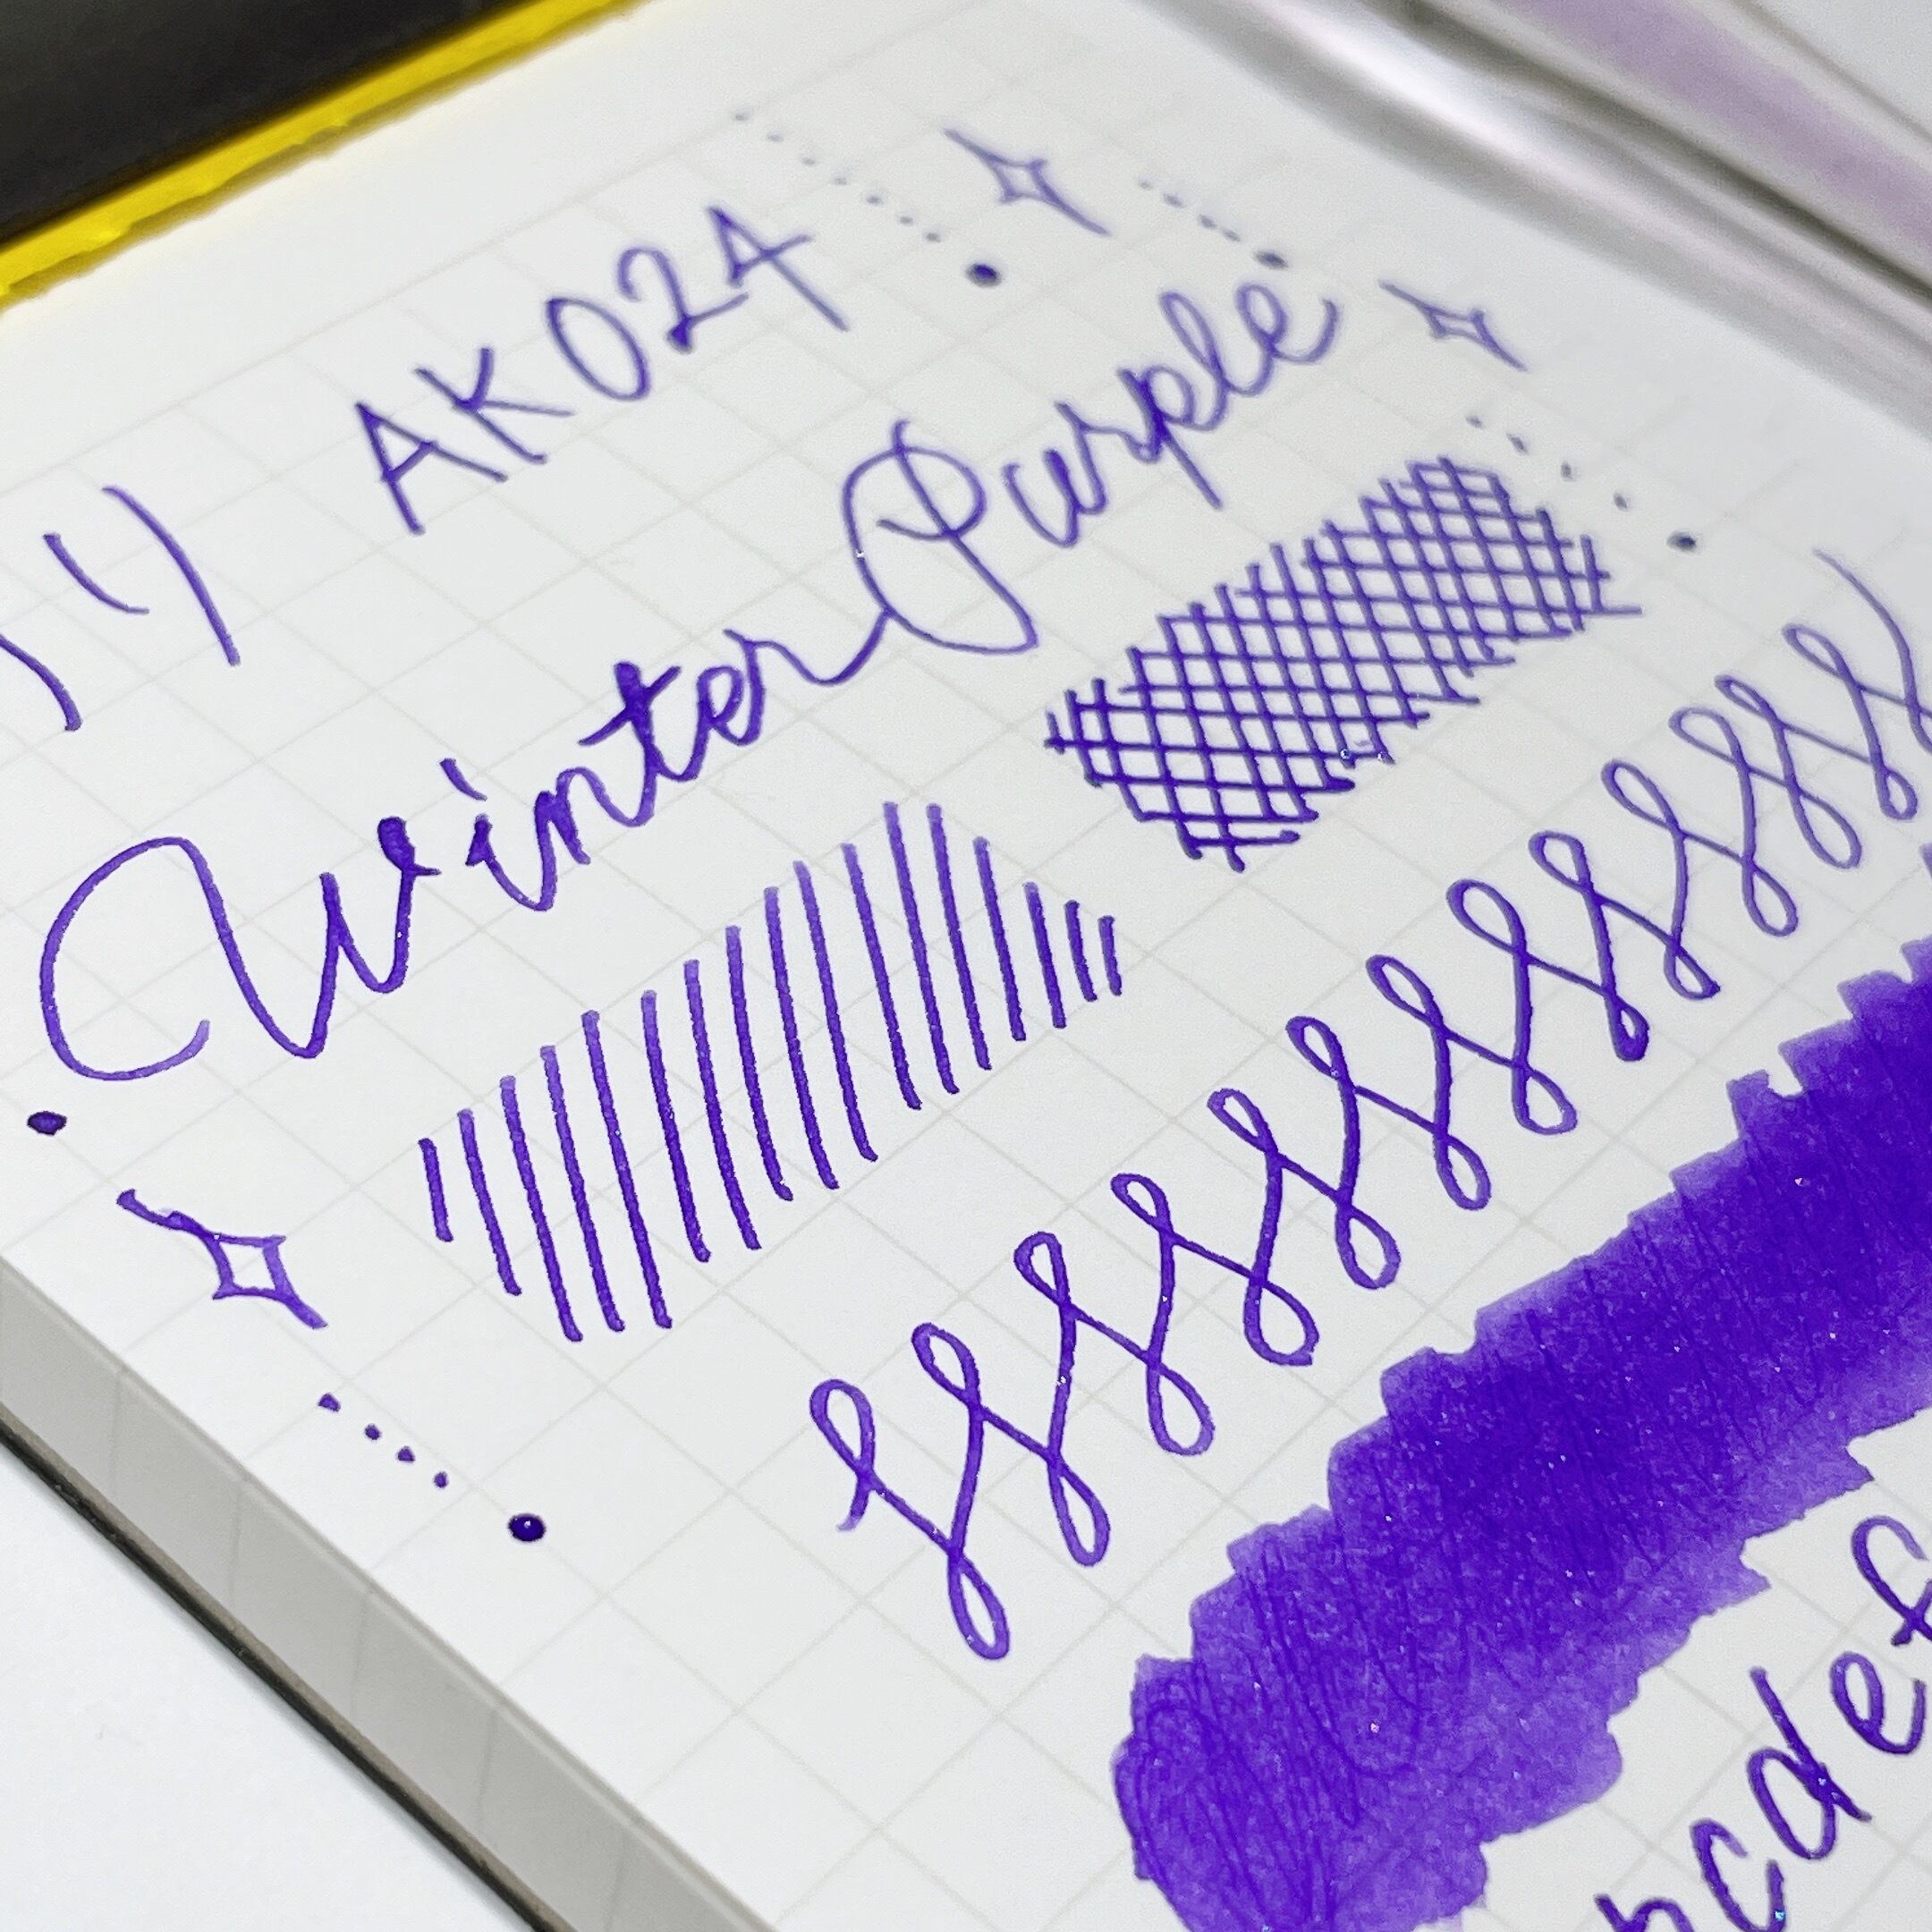 AK024
Winter Purple
bcdef